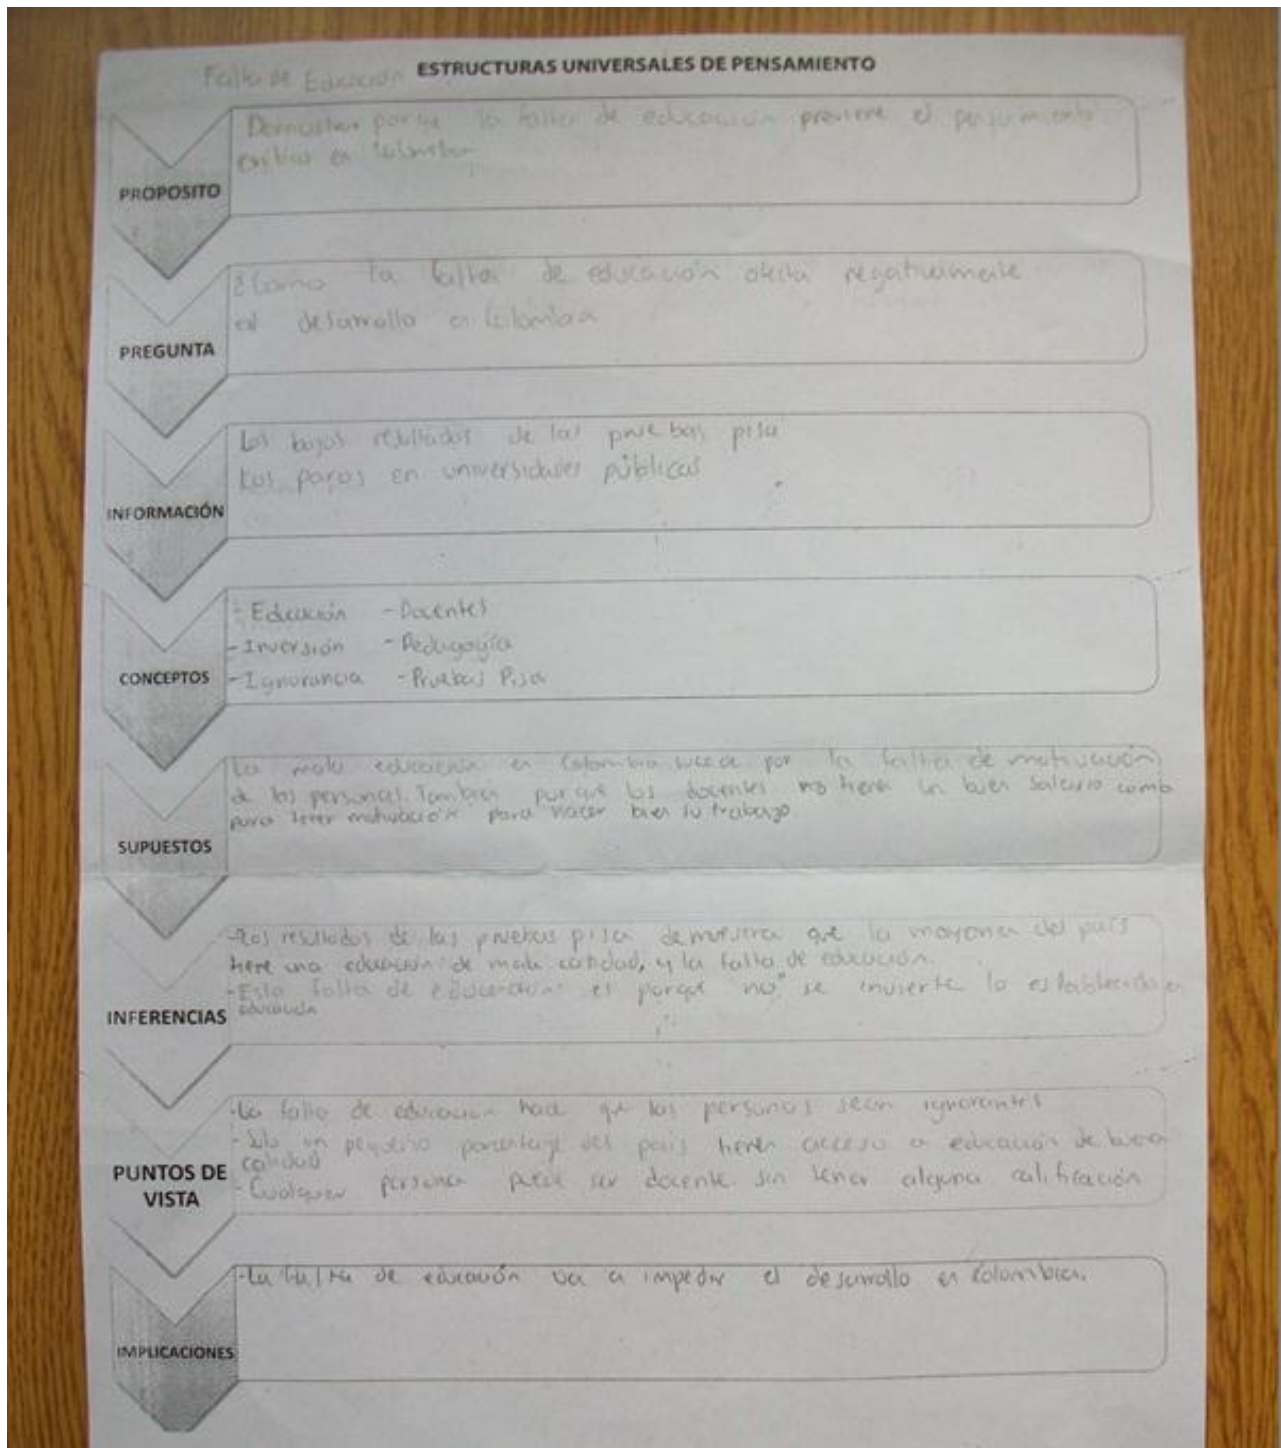 Falta de Educación ESTRUCTURAS UNIVERSALES DE PENSAMIENTO
Demostrar porque la falta de educación previene el pensamiento
crítico en Colombia
PROPOSITO
¿Como la falta de educación afecta negativamente
el desarrollo en Colombia
PREGUNTA
Los bajos resultados de las pruebas pisa
Los paros en universidades públicas
INFORMACIÓN
- Educación - Docentes
- Inversión - Pedagogía
CONCEPTOS - Ignorancia - Pruebas Pisa
La mala educación en Colombia sucede por la falta de motivación
de las personas. Tambien porque los docentes no tienen un buen salario como
para tener motivación para hacer bien su trabajo
SUPUESTOS
-Los resultados de las pruebas pisa demuestra que la mayoria del país
tiene una educación de mala calidad, y la falta de educación.
-Esta falta de educación es porque no se invierte lo establecido en
educación
INFERENCIAS
-La falta de educación hace que las personas sean ignorantes
- Solo un pequeño porcentaje del país tienen acceso a educación de buena
calidad
PUNTOS DE VISTA - Cualquier persona puede ser docente sin tener alguna calificación
-La falta de educación va a impedir el desarrollo en Colombia.
IMPLICACIONES